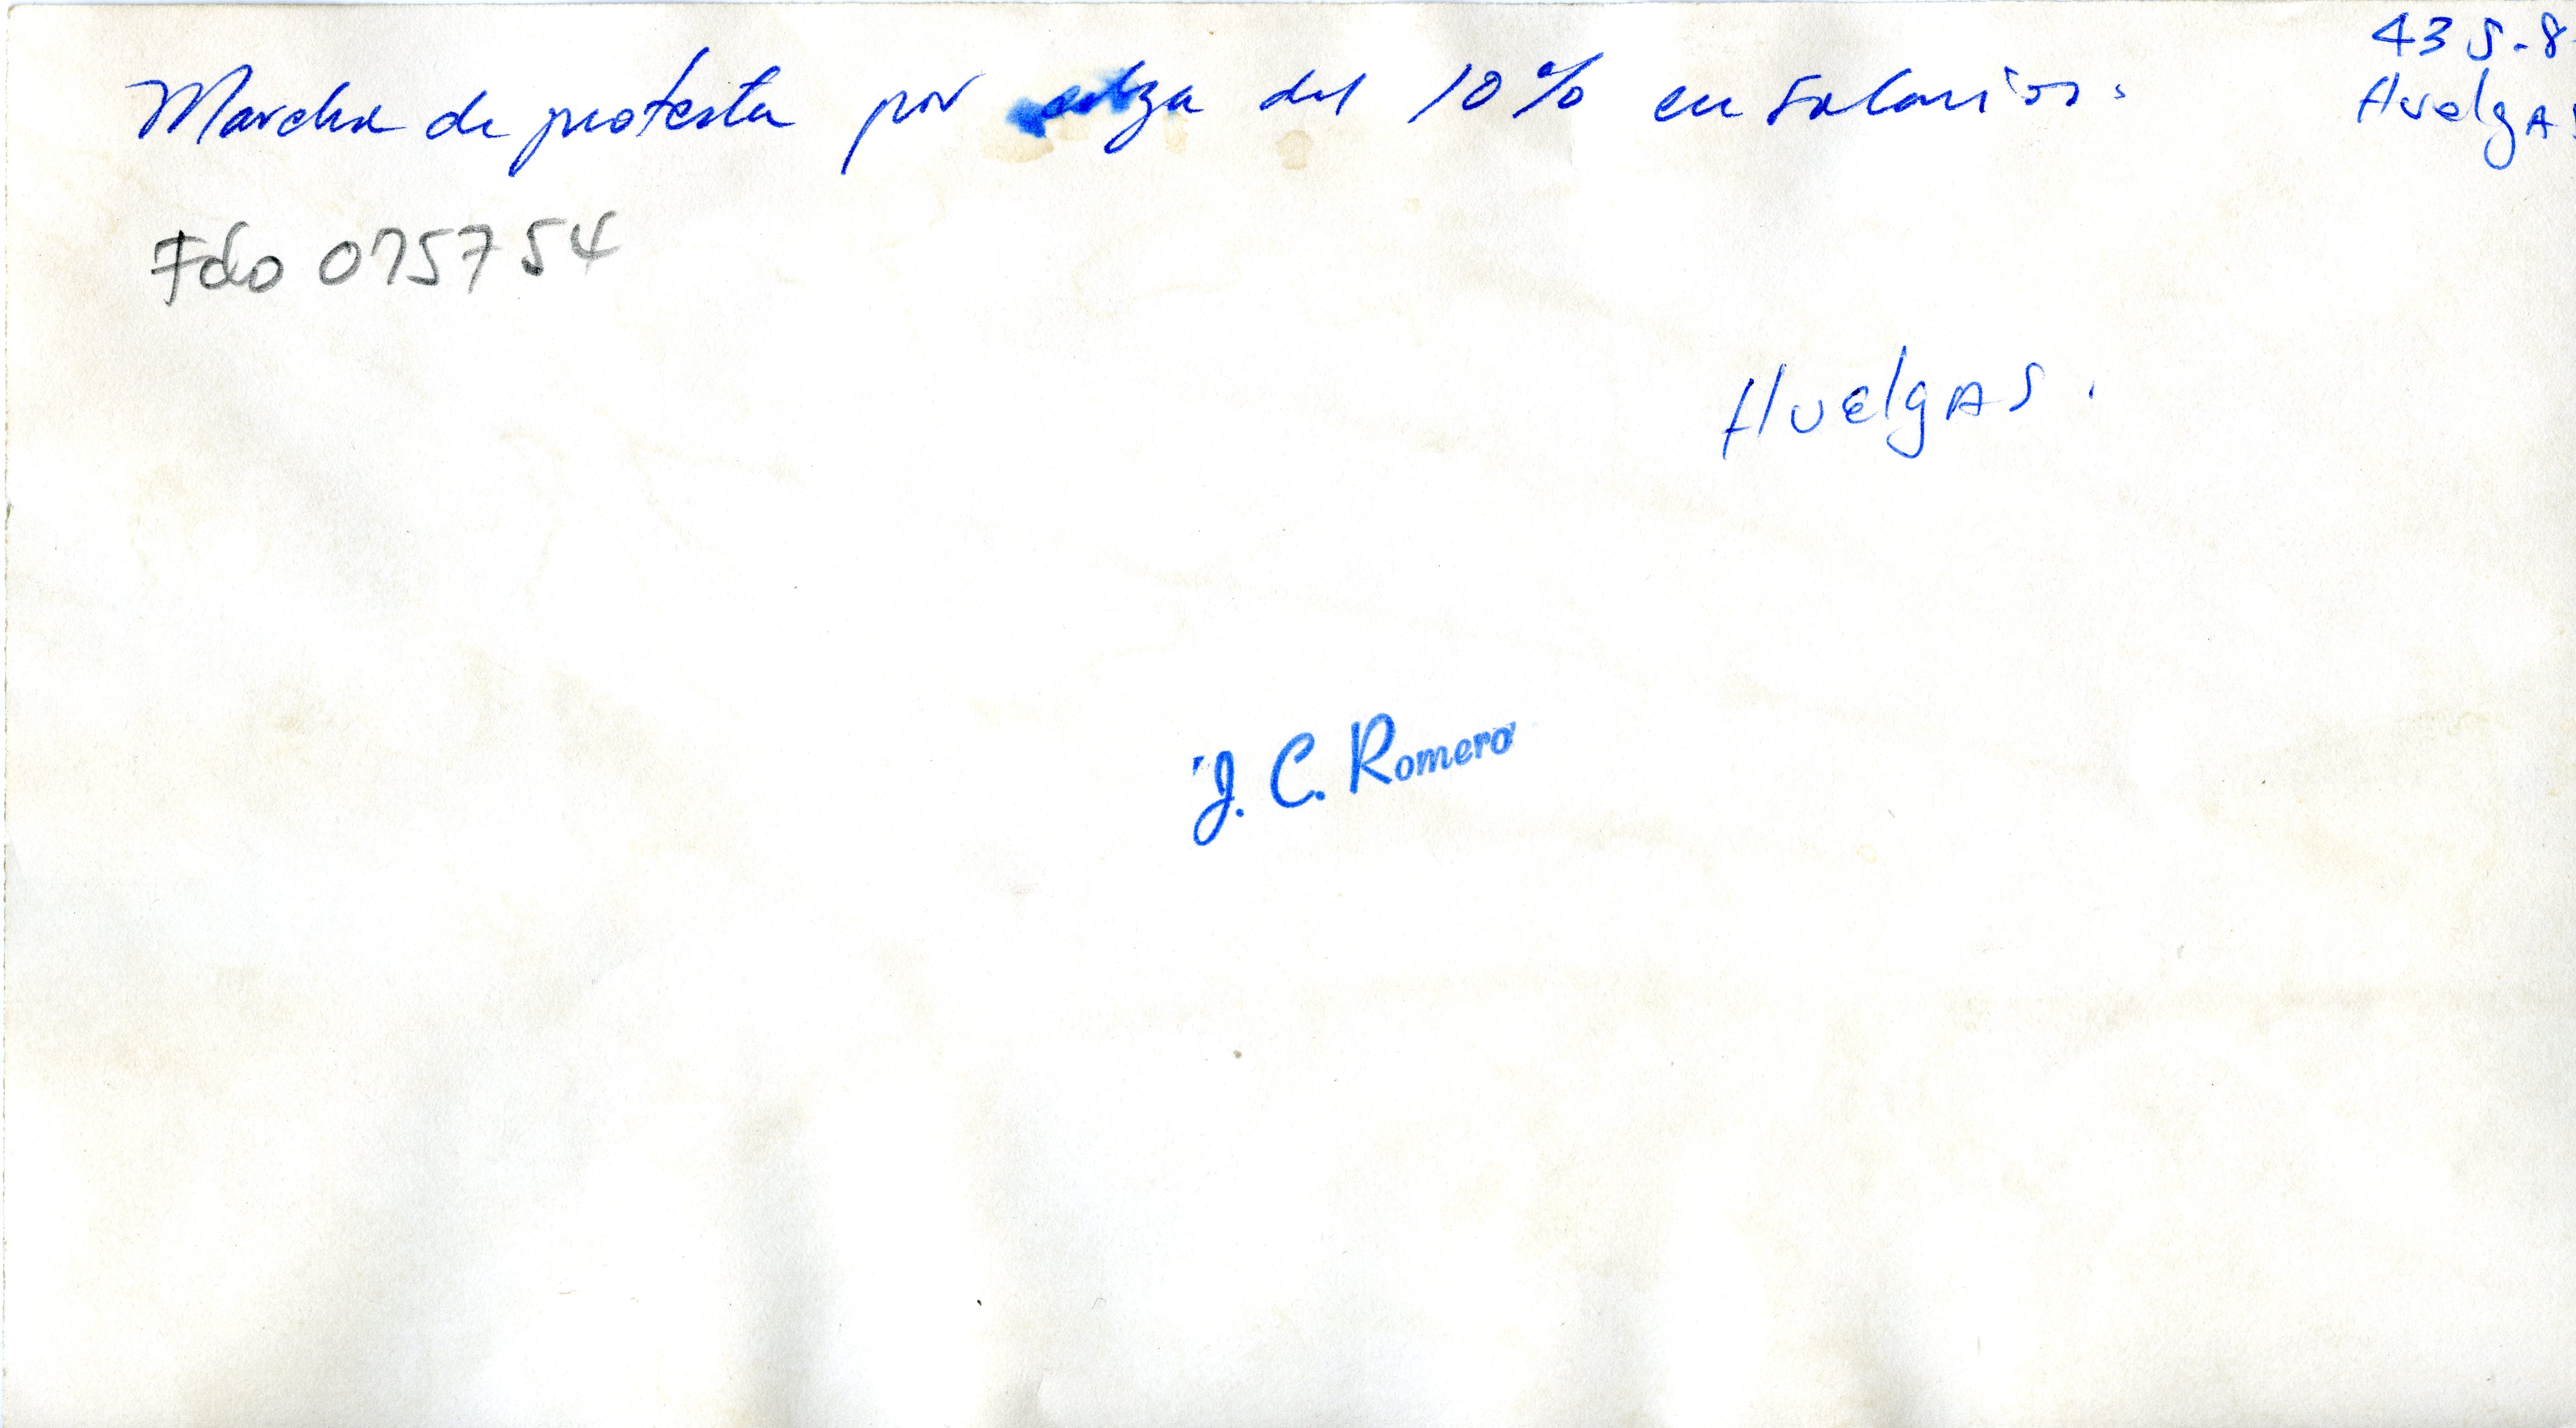 435-8
Marcha de protesta por alza del 10% en salarios.
Huelgas
Fdo 075754
Huelgas.
J. C. Romero